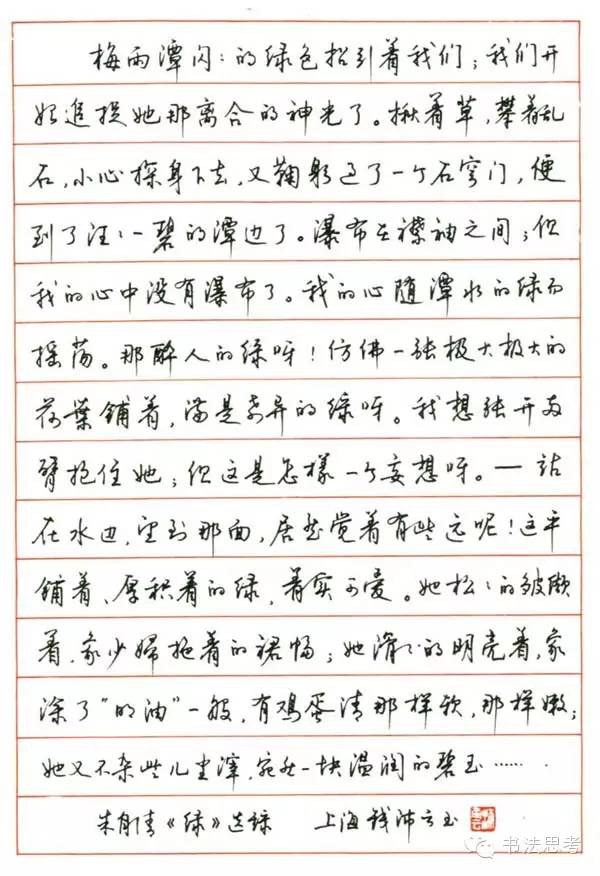 梅雨潭闪：的绿色招引着我们；我们开
始追捉她那离合的神光了。揪着草，攀着乱
石，小心探身下去，又鞠躬过了一个石穹门，便
到了汪：一碧的潭边了。瀑布在襟袖之间；但
我的心中没有瀑布了。我的心随潭水的绿而
摇荡。那醉人的绿呀！仿佛一张极大极大的
荷葉铺着，满是奇异的绿呀。我想张开两
臂抱住她；但这是怎樣一个妄想呀。——站
在水边，望到那面，居然觉着有些远呢！这平
铺着、厚积着的绿，着实可爱。她松：的皱缬
着，象少婦拖着的裙幅；她滑：的明亮着，象
涂了“明油”一般，有鸡蛋清那样软，那样嫩；
她又不杂些儿尘滓，宛然一块温润的碧玉……
朱自清《绿》选录　上海钱沛云书
书法思考